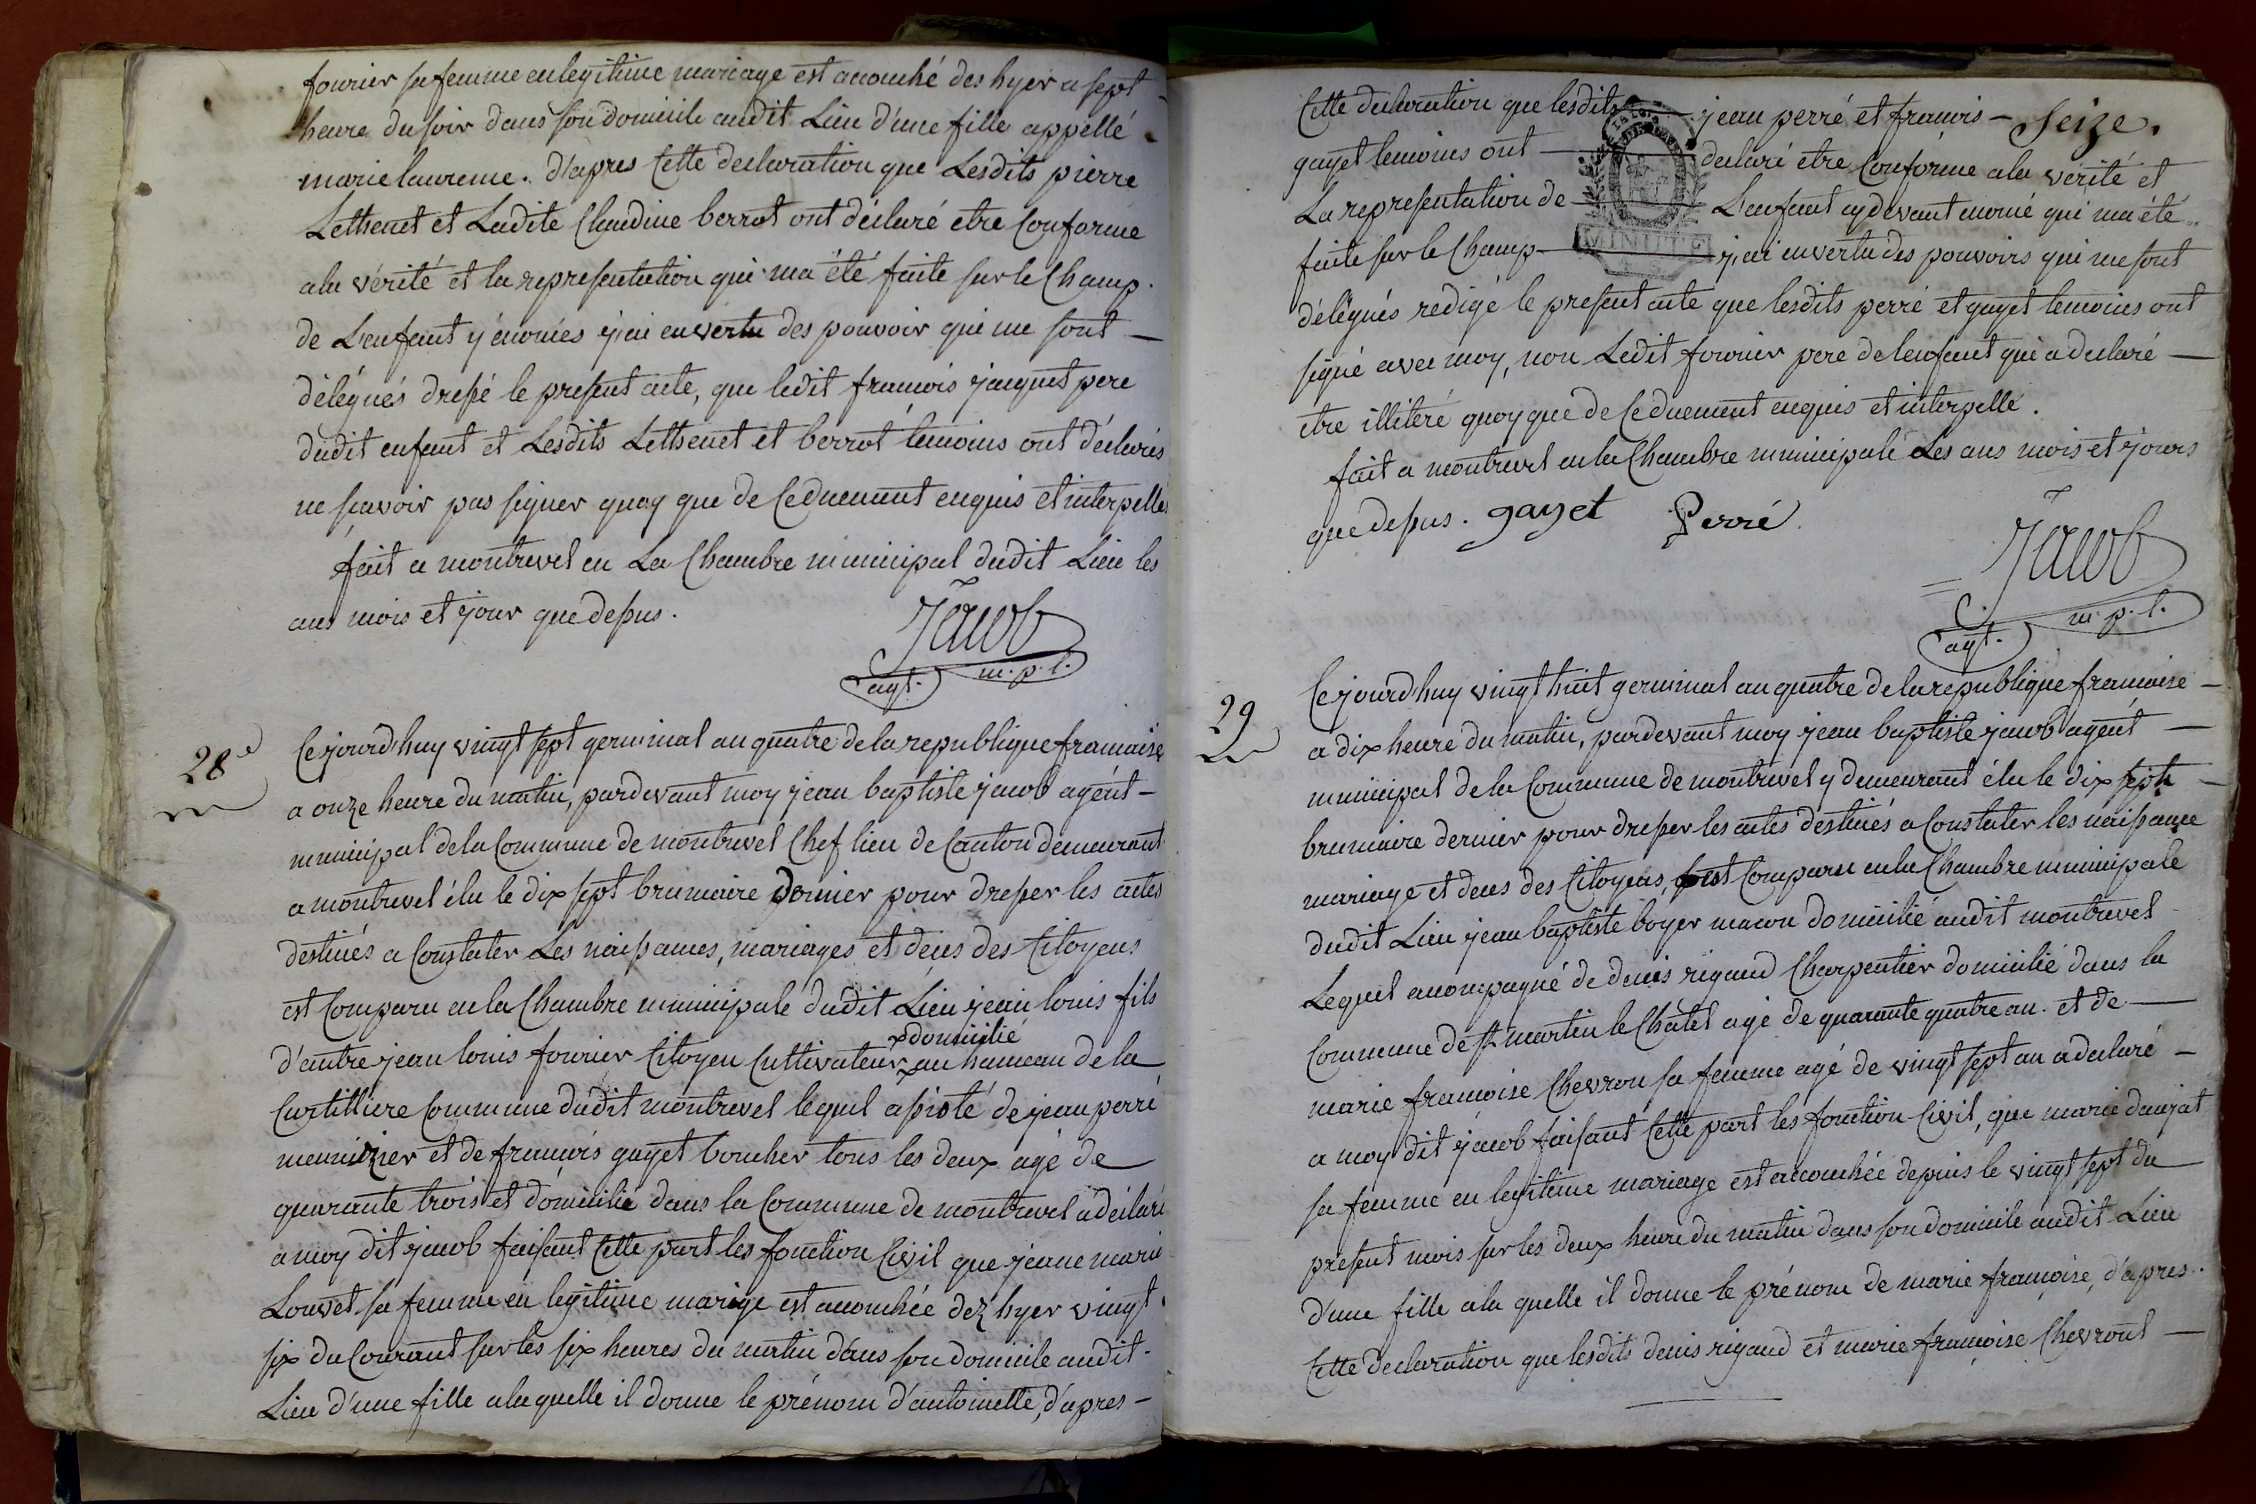 fourier sa femme en legitime mariage est acouché des hyer a sept
heure du soir dans son domicile audit Lieu d'une fille appellé
marie laurence. d'apres Cette declaration que Lesdits pierre
Lethenet et Ladite Claudine berrot ont déclaré etre Conforme
ala vérité et la representation qui ma été faite sur le Champ.
de L'enfant y énomés j'ai en vertu des pouvoir qui me sont —
délégués dressé le present acte, que ledit francois jacquet pere
dudit enfant et Lesdits Lethenet et berrot temoins ont déclarés
ne scavoir pas signer quoy que de Ce duement enquis et interpellés
fait a montrevel en La Chambre municipal dudit Lieu les
ans mois et jour que dessus.
Jacob
agt. m.p.l.
28e
Cejourd'huy vingt sept germinal an quatre de la republique francaise
a onze heure du matin, pardevant moy jean baptiste jacob agént —
municipal dela Commune de montrevel Chef lieu de Canton demeurant
a montrevel élu le dix sept brumaire dernier pour dresser les actes
destinés a Constater Les naissances, mariages et déces des Citoyens
est Comparu en la Chambre municipale dudit Lieu jean louis fils
x domicilié
d'autre jean louis fourier Citoyen Cultivateur x au hameau de la
Curtilliere Commune dudit montrevel lequel assisté de jean perré
meunizier et de francois gayet boucher tous les deux agé de
quarante trois et domicilié dans la Commune de montrevel a déclaré
a moy dit jacob faisant Cette part les fonction Civil que jeane marie
Louvet sa femme en legitime mariage est acouchée dez hyer vingt
six du Courant sur les six heures du matin dans son domicile audit
Lieu d'une fille alaquelle il donne le prénom d'antoinette, d'apres —
Seize.
Cette declaration que lesdits jean perré et francois —
gayet temoins ont declaré etre Conforme ala vérité et
La representation de L'enfant cy devant nomé qui ma été
faite sur le Champ j'ai en vertu des pouvoirs qui me sont
MINUTE
délégués redigé le present acte que lesdits perré et gayet temoins ont
signé avec moy, non Ledit fourier pere de lenfant qui a declaré —
etre illiteré quoy que de Ce duement enquis et interpellé.
fait a montrevel en la Chambre municipale Les ans mois et jours
que dessus. gayet Perré
Jacob
agt. m.p.l.
29
Cejourdhuy vingt huit germinal an quatre de la republique francaise —
a dix heure du matin, pardevant moy jean baptiste jacob agent —
municipal de la Commune de montrevel y demeurant élu le dix sept —
brumaire dernier pour dresser les actes destinés a Constater les naissance
mariage et deces des Citoyens, est Comparu en la Chambre municipale
dudit Lieu jean baptiste boyer macon domicilié audit montrevel
Lequel acompagné de denis rigaud Charpentier domicilié dans la
Commune de st martin le Chatel agé de quarante quatre an. et de —
marie francoise Chevron sa femme agé de vingt sept an a declaré —
a moy dit jacob faisant Cette part les fonction Civil, que marie danjat
sa femme en legitime mariage est acouchée depuis le vingt sept du
present mois sur les deux heure du matin dans son domicile audit Lieu
d'une fille ala quelle il donne le prénom de marie francoise, d'apres.
Cette declaration que lesdits denis rigaud et marie francoise Chevront —